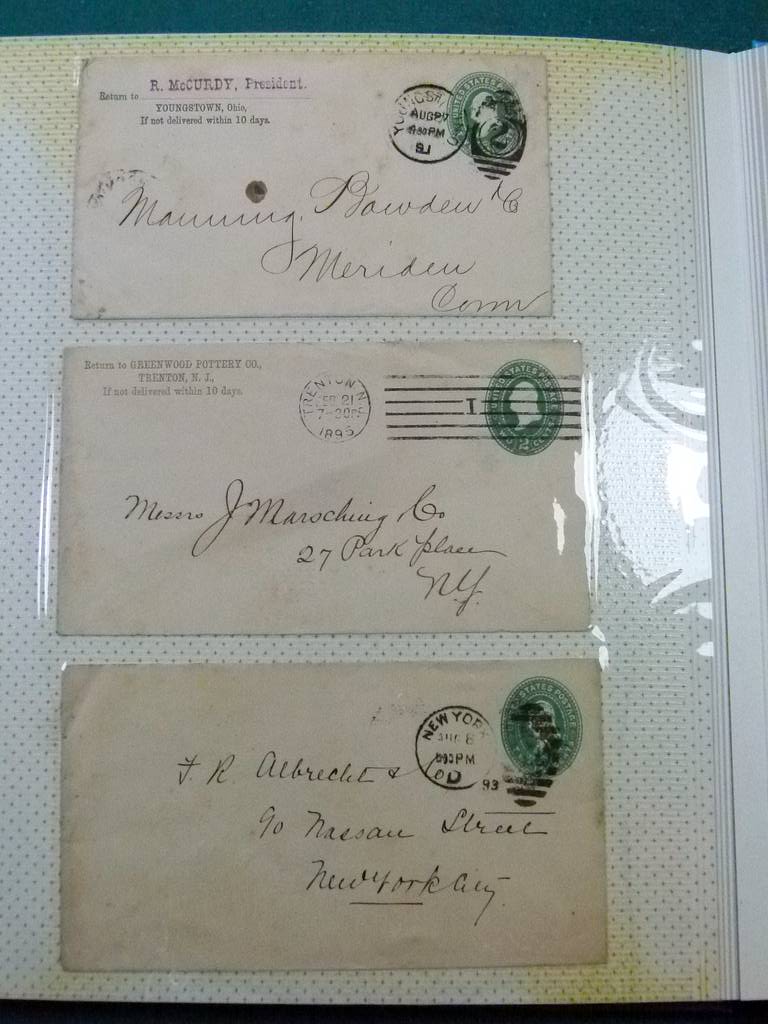 R. McCURDY, President.
Return to
YOUNGSTOWN, Ohio,
If not delivered within 10 days.
AUG 27
PM
91
2
Manning, Bowden & Co
Meriden
Conn
Return to GREENWOOD POTTERY CO.,
TRENTON, N. J.,
If not delivered within 10 days.
TRENTON N.J.
FEB 21
7-30P
1895
I
UNITED STATES POSTAGE
TWO 2 CENTS
Messrs J Marsching Co
27 Park place
NY.
NEW YORK
AUG 8
PM
D
93
UNITED STATES POSTAGE
F. R. Albrecht & Co
90 Nassau Street
New York City.